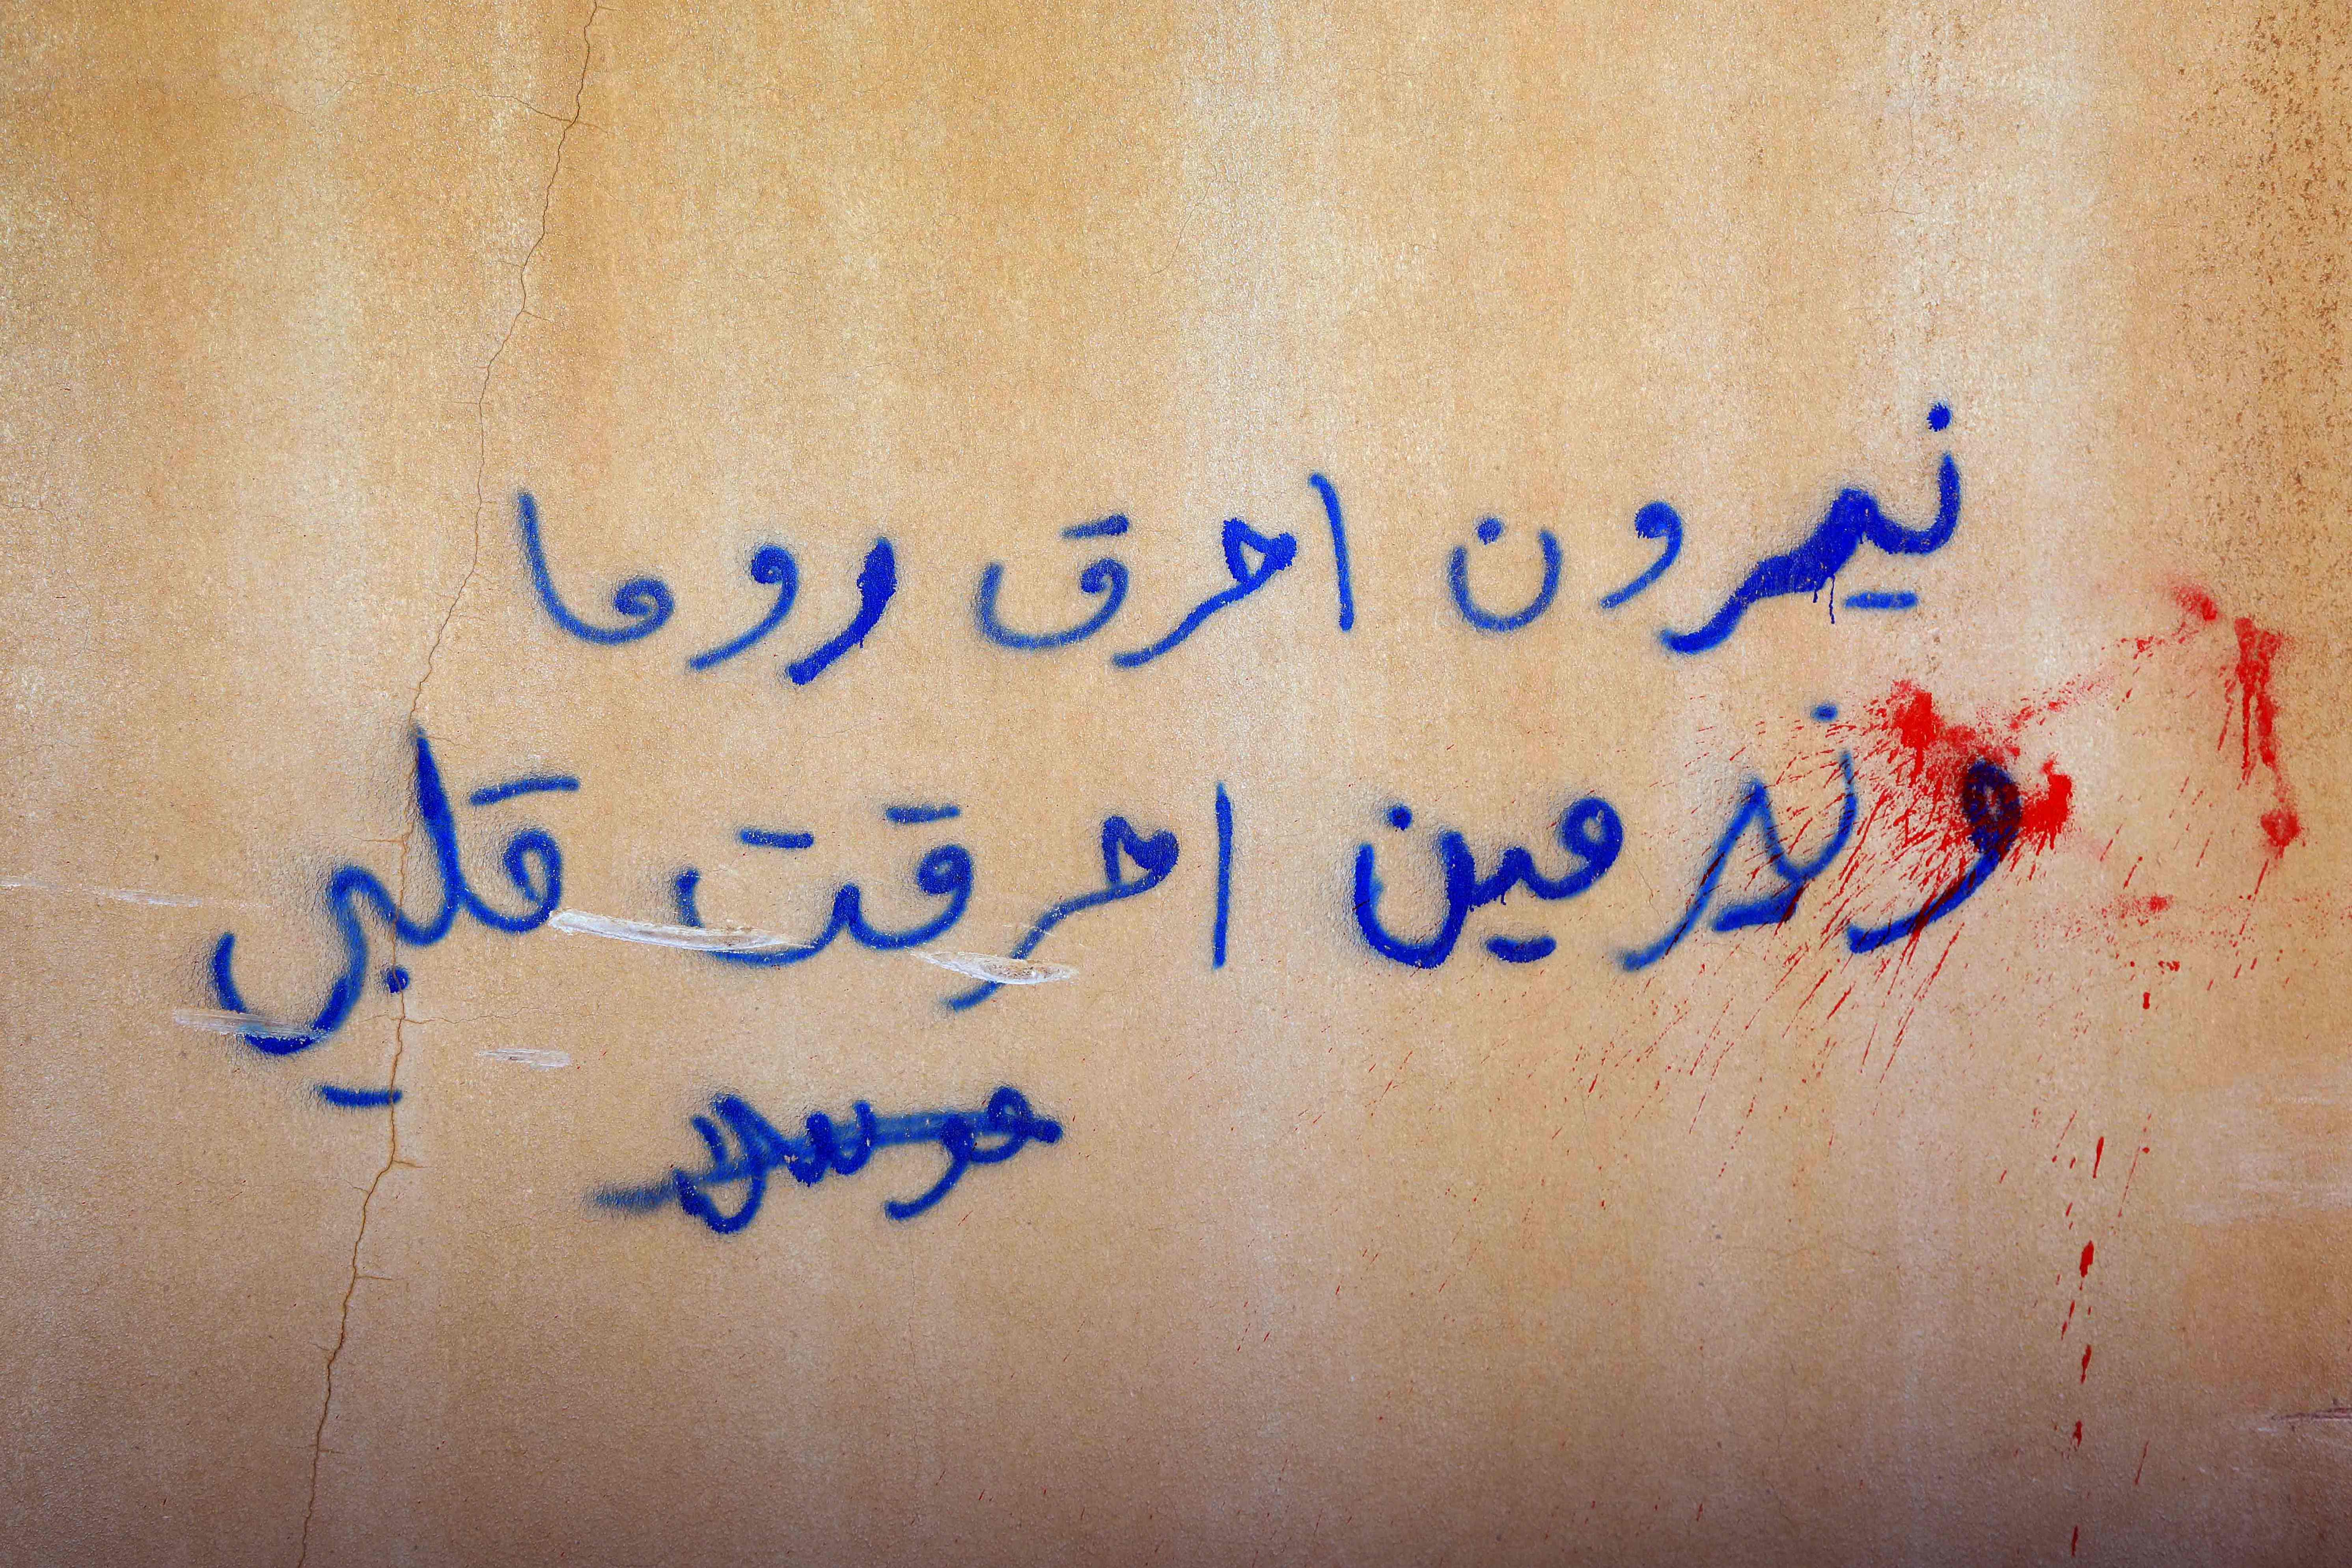 نيمرون احرق روما
و نرمين احرقت قلبي